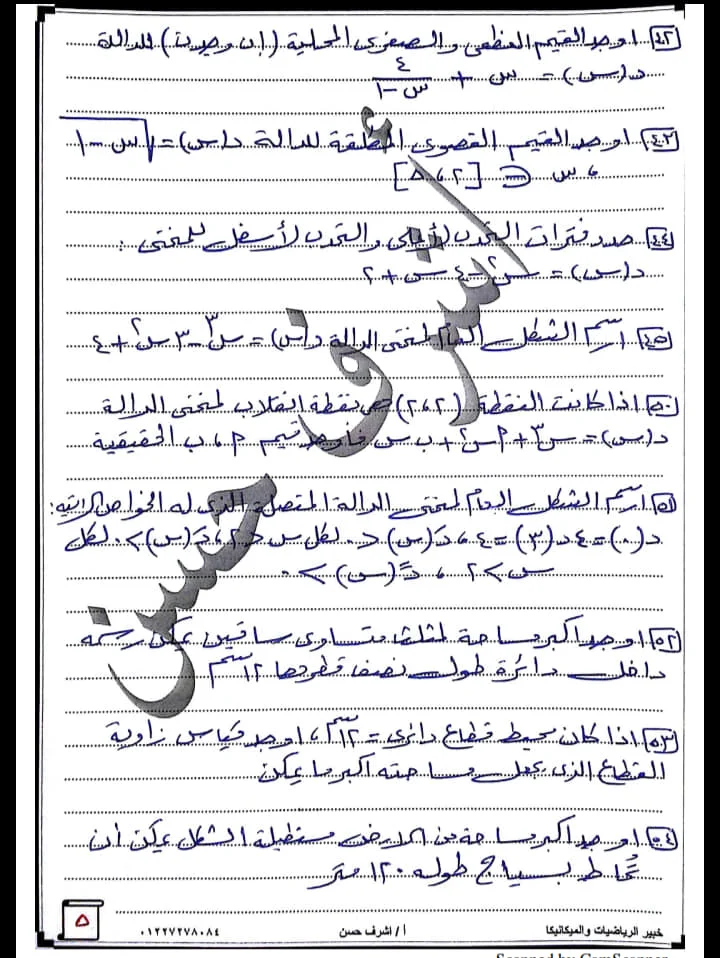 ٤٢ اوجد القيم العظمى والصغرى المحلية (إن وجدت) للدالة
د(س) = س + ٤/(س - ١)
٤٣ اوجد القيم القصوى المطلقة للدالة د(س) = √(س - ١)
، س ∈ [٢، ٥]
٤٤ حدد فترات التحدب لأعلى والتحدب لأسفل للمنحنى :
د(س) = س٢ - ٤ س + ٢
٤٥ ارسم الشكل العام لمنحنى الدالة د(س) = س٣ - ٣ س٢ + ٤
٥٠ اذا كانت النقطة (٢، ٢) هى نقطة انقلاب لمنحنى الدالة
د(س) = س٣ + م س٢ + ب س فأوجد قيم م، ب الحقيقية
٥١ ارسم الشكل العام لمنحنى الدالة المتصلة الذى له الخواص الاتيه:
د(٠) = ٤ د(٣) = ٤ ، دَ(س) < ٠ لكل س < ٢ ، دَ(س) > ٠ لكل
س > ٢ ، دً(س) > ٠
٥٢ اوجد اكبر مساحة لمثلث متساوى ساقين يمكن رسمه
داخل دائرة طول نصف قطرها ١٢ سم
٥٣ اذا كان محيط قطاع دائرى = ١٢ سم، اوجد قياس زاوية
القطاع الذى يجعل مساحته اكبر ما يمكن
٥٤ اوجد اكبر مساحة من الارض مستطيلة الشكل يمكن أن
تُحاط بسياج طوله ١٢٠ متر
أشرف حسن
خبير الرياضيات والميكانيكا أ / أشرف حسن ٠١٢٢٧٢٧٨٠٨٤ ٥
Scanned by CamScanner